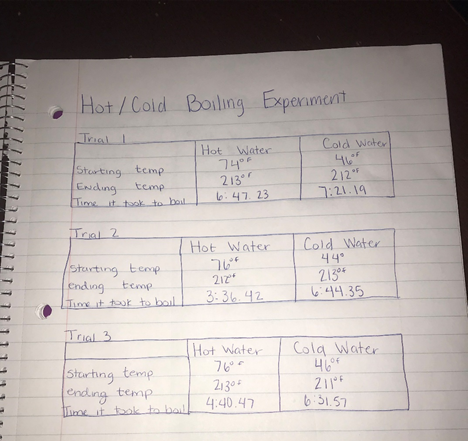 Hot/Cold Boiling Experiment
Trial 1
Hot Water Cold Water
Starting temp 74°F 46°F
Ending temp 213°F 212°F
Time it took to boil 6:47.23 7:21.19
Trial 2
Hot Water Cold Water
Starting temp 76°F 44°
ending temp 212°F 213°F
Time it took to boil 3:36.42 6:44.35
Trial 3
Hot Water Cold Water
Starting temp 76°F 46°F
ending temp 213°F 211°F
Time it took to boil 4:40.47 6:31.57